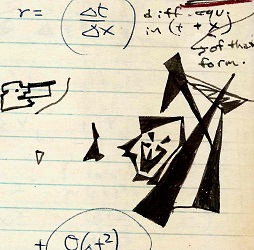 r = (Δt/Δx) diff. equ.
in (t + x)
of that
form.
+ O(Δt²)